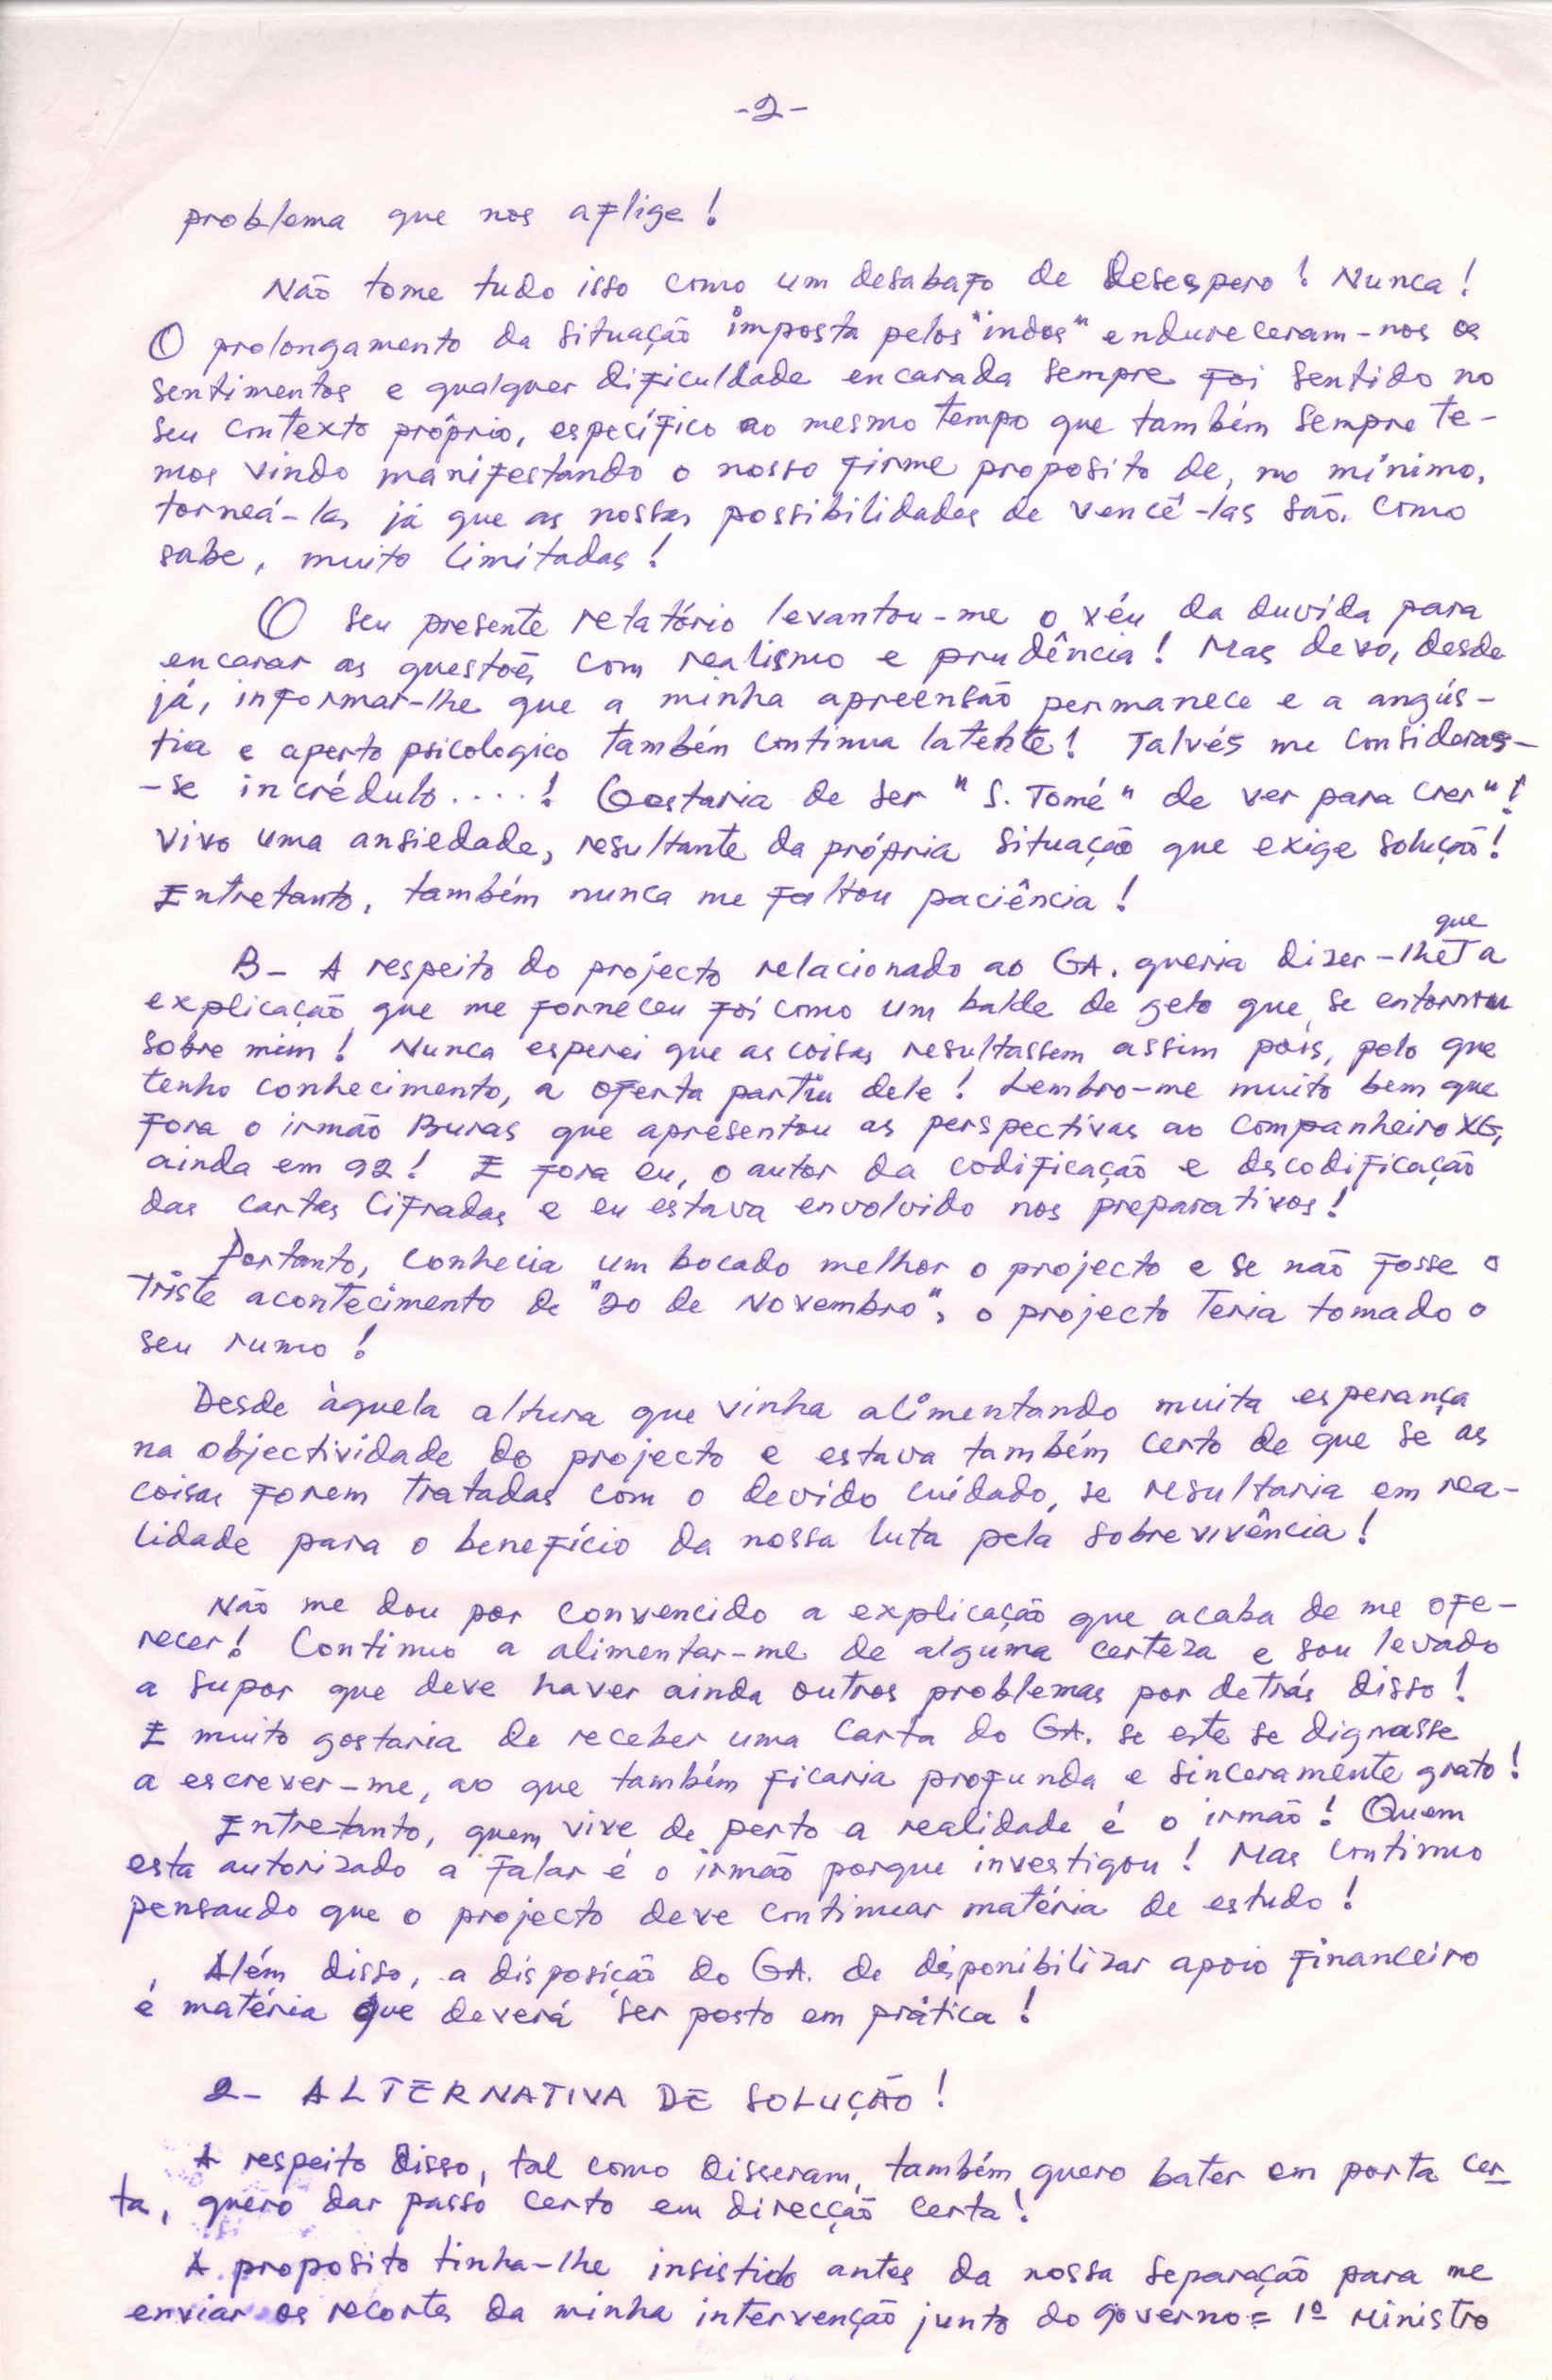 -2-
problema que nos aflige!
Não tome tudo isso como um desabafo de Desespero! Nunca!
O prolongamento da situação imposta pelos "indos" endureceram-nos os
sentimentos e qualquer dificuldade encarada sempre foi sentido no
seu contexto próprio, específico ao mesmo tempo que também sempre te-
mos vindo manifestando o nosso firme proposito de, no mínimo,
torneá-las já que as nossas possibilidades de vencê-las são, como
sabe, muito limitadas!
O seu presente relatório levantou-me o véu da duvida para
encarar as questões com realismo e prudência! Mas devo, desde
já, informar-lhe que a minha apreensão permanece e a angús-
tia e aperto psicologico também continua latente! Talvés me consideras-
-se incrédulo....! Gostaria de ser "S. Tomé" de ver para crer"!
Vivo uma ansiedade, resultante da própria situação que exige solução!
Entretanto, também nunca me faltou paciência!
B- A respeito do projecto relacionado ao GA. queria dizer-lhe que a
explicação que me forneceu foi como um balde de gelo que se entornou
sobre mim! Nunca esperei que as coisas resultassem assim pois, pelo que
tenho conhecimento, a oferta partiu dele! Lembro-me muito bem que
fora o irmão Buras que apresentou as perspectivas ao companheiro XG,
ainda em 92! E fora eu, o autor da codificação e descodificação
das cartas cifradas e eu estava envolvido nos preparativos!
Portanto, conhecia um bocado melhor o projecto e se não fosse o
triste acontecimento de "20 de Novembro", o projecto teria tomado o
seu rumo!
Desde àquela altura que vinha alimentando muita esperança
na objectividade do projecto e estava também certo de que se as
coisas forem tratadas com o devido cuidado, se resultaria em rea-
lidade para o benefício da nossa luta pela sobrevivência!
Não me dou por convencido a explicação que acaba de me ofe-
recer! Continuo a alimentar-me de alguma certeza e sou levado
a supor que deve haver ainda outros problemas por detrás disso!
E muito gostaria de receber uma carta do GA. se este se dignasse
a escrever-me, ao que também ficaria profunda e sinceramente grato!
Entretanto, quem vive de perto a realidade é o irmão! Quem
esta autorizado a falar é o irmão porque investigou! Mas continuo
pensando que o projecto deve continuar matéria de estudo!
Além disso, a disposição do GA. de disponibilizar apoio financeiro
é matéria que deverá ser posto em prática!
2- ALTERNATIVA DE SOLUÇÃO!
A respeito disso, tal como disseram, também quero bater em porta cer-
ta, quero dar passo certo em direcção certa!
A proposito tinha-lhe insistido antes da nossa separação para me
enviar os recortes da minha intervenção junto do governo = 1º Ministro